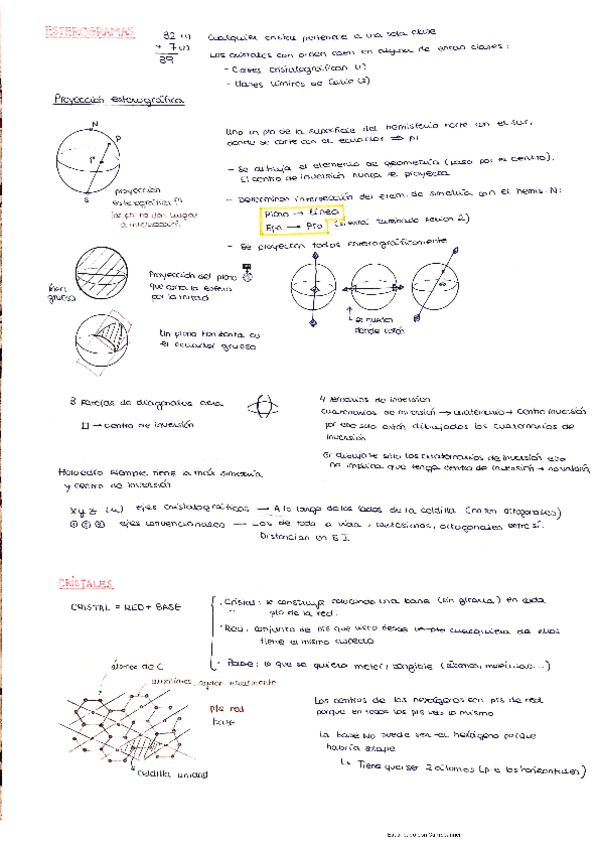 ESTEROGRAMAS
32 (1)
+ 7 (2)
39
Cualquier cristal pertenece a una sola clase
Los cristales con orden caen en alguna de clases:
- Clases cristalográficas (1)
- Clases límites de Curie (2)
Proyección esterográfica
N
P
P'
S
proyección
esterográfica
Uno un pto de la superficie del hemisferio norte con el sur,
donde se corte con el ecuador ⇒ p'
- Se dibuja el elemento de geometría (paso por el centro).
El centro de inversión nunca se proyecta
- Determinar intersección del elem. de simetría con el hemis. N:
Plano → Línea
Eje → Pto
- Se proyectan todos esterográficamente
línea
gruesa
Proyección del plano
que corta la esfera
por la mitad
Un plano horizontal es
el ecuador grueso
se ponen
donde cortan
3 Parejas de diagonales cara
□ → centro de inversión
4 ternarios de inversión
cuaternarios de inversión → cuaternario + centro inversión
por eso solo están dibujados los cuaternarios de
inversión
Si dibujaste solo los cuaternarios de inversión eso
no implica que tenga centro de inversión →
Holoedro siempre tiene la máx simetría
y centro de inversión
x y z ejes cristalográficos → A lo largo de los lados de la celdilla (no son ortogonales)
① ② ③ ejes convencionales — Los de toda la vida, cartesianos, ortogonales entre sí.
CRISTALES
CRISTAL = RED + BASE
· Cristal: se construye colocando una base (sin girarla) en cada
pto de la red.
· Red: conjunto de pts que visto desde cualquiera de ellos
tiene el mismo aspecto
· Base: lo que se quiera meter, tangible (átomos, moléculas...)
átomos de C
pts red
base
celdilla unidad
Los centros de los hexágonos son pts de red
porque en todos los pts veo lo mismo
La base NO puede ser el hexágono porque
habría solape
↳ Tiene que ser 2 átomos